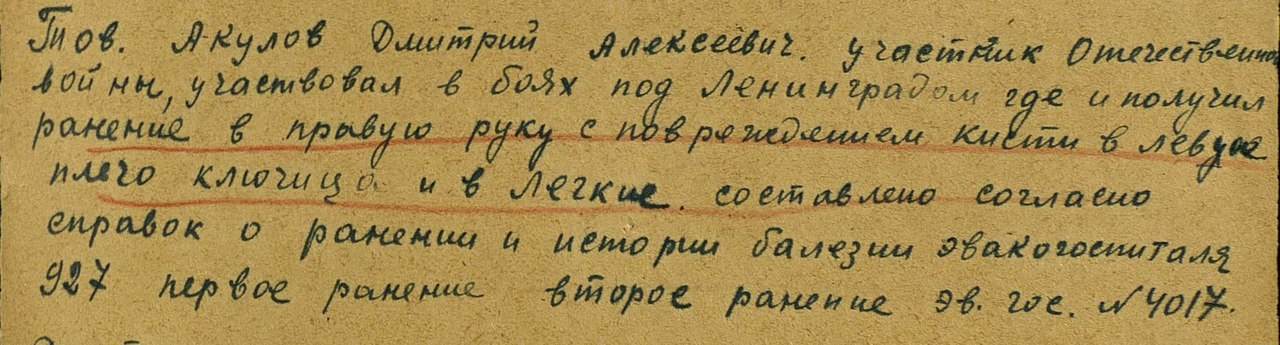 Тов. Акулов Дмитрий Алексеевич. участник Отечественной
войны, участвовал в боях под Ленинградом где и получил
ранение в правую руку с повреждением кисти в левое
плечо ключица и в легкие. составлено согласно
справок о ранении и истории балезни эвакогоспиталя
927 первое ранение второе ранение эв. гос. N 4017.